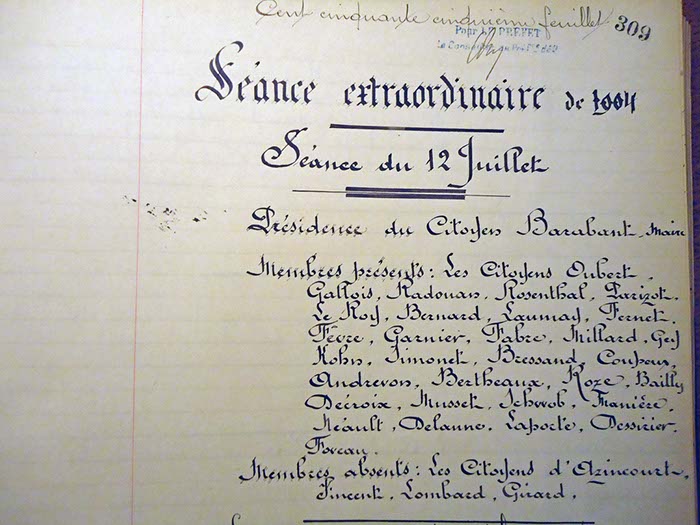 Cent cinquante cinquième feuillet 309
Pour LE PREFET
Séance extraordinaire de 1904
Séance du 12 Juillet
Présidence du Citoyen Barabant, Maire
Membres présents: Les Citoyens Oubert,
Gallois, Radouan, Rosenthal, Parizot,
Le Roy, Bernard, Launay, Fernet,
Fèvre, Garnier, Fabre, Millard, Gey
Kohn, Simonet, Bressand, Coupeux,
Andrevon, Bertheaux, Roze, Bailly
Décroix, Musset, Schwob, Manière,
Méault, Delanne, Laporte, Dessirier,
Foveau.
Membres absents: Les Citoyens d'Azincourt,
Vincent, Lombard, Girard.